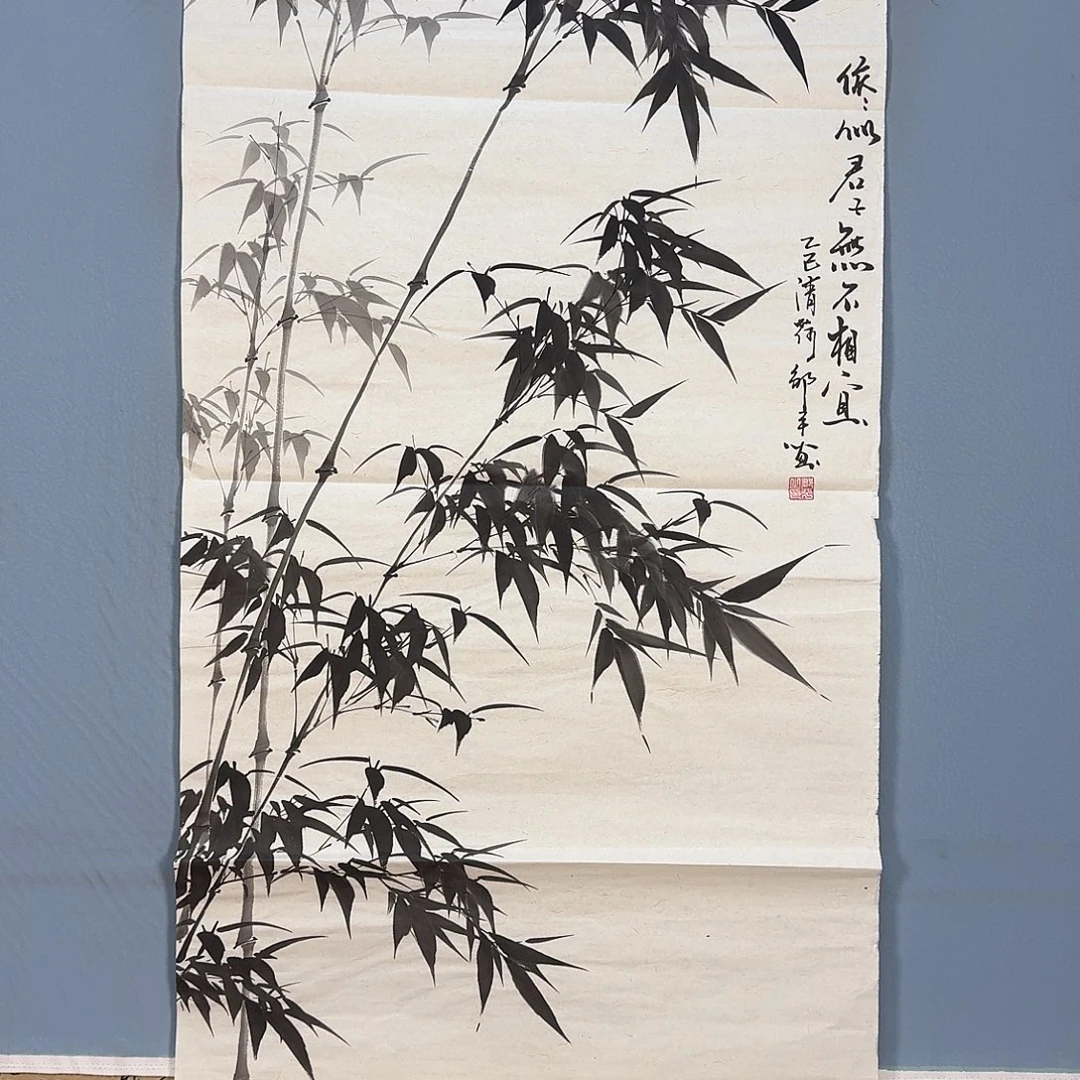 依〻似君子無不相宜
乙巳清荷邹丰画